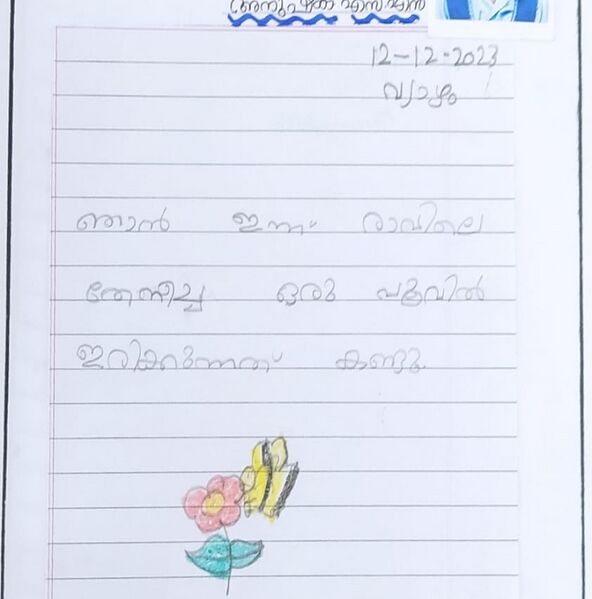 അനുഷ്ക എസ് എൻ
12-12-2023
വ്യാഴം
ഞാൻ ഇന്ന് രാവിലെ
തേനീച്ച ഒരു പൂവിൽ
ഇരിക്കുന്നത് കണ്ടു.